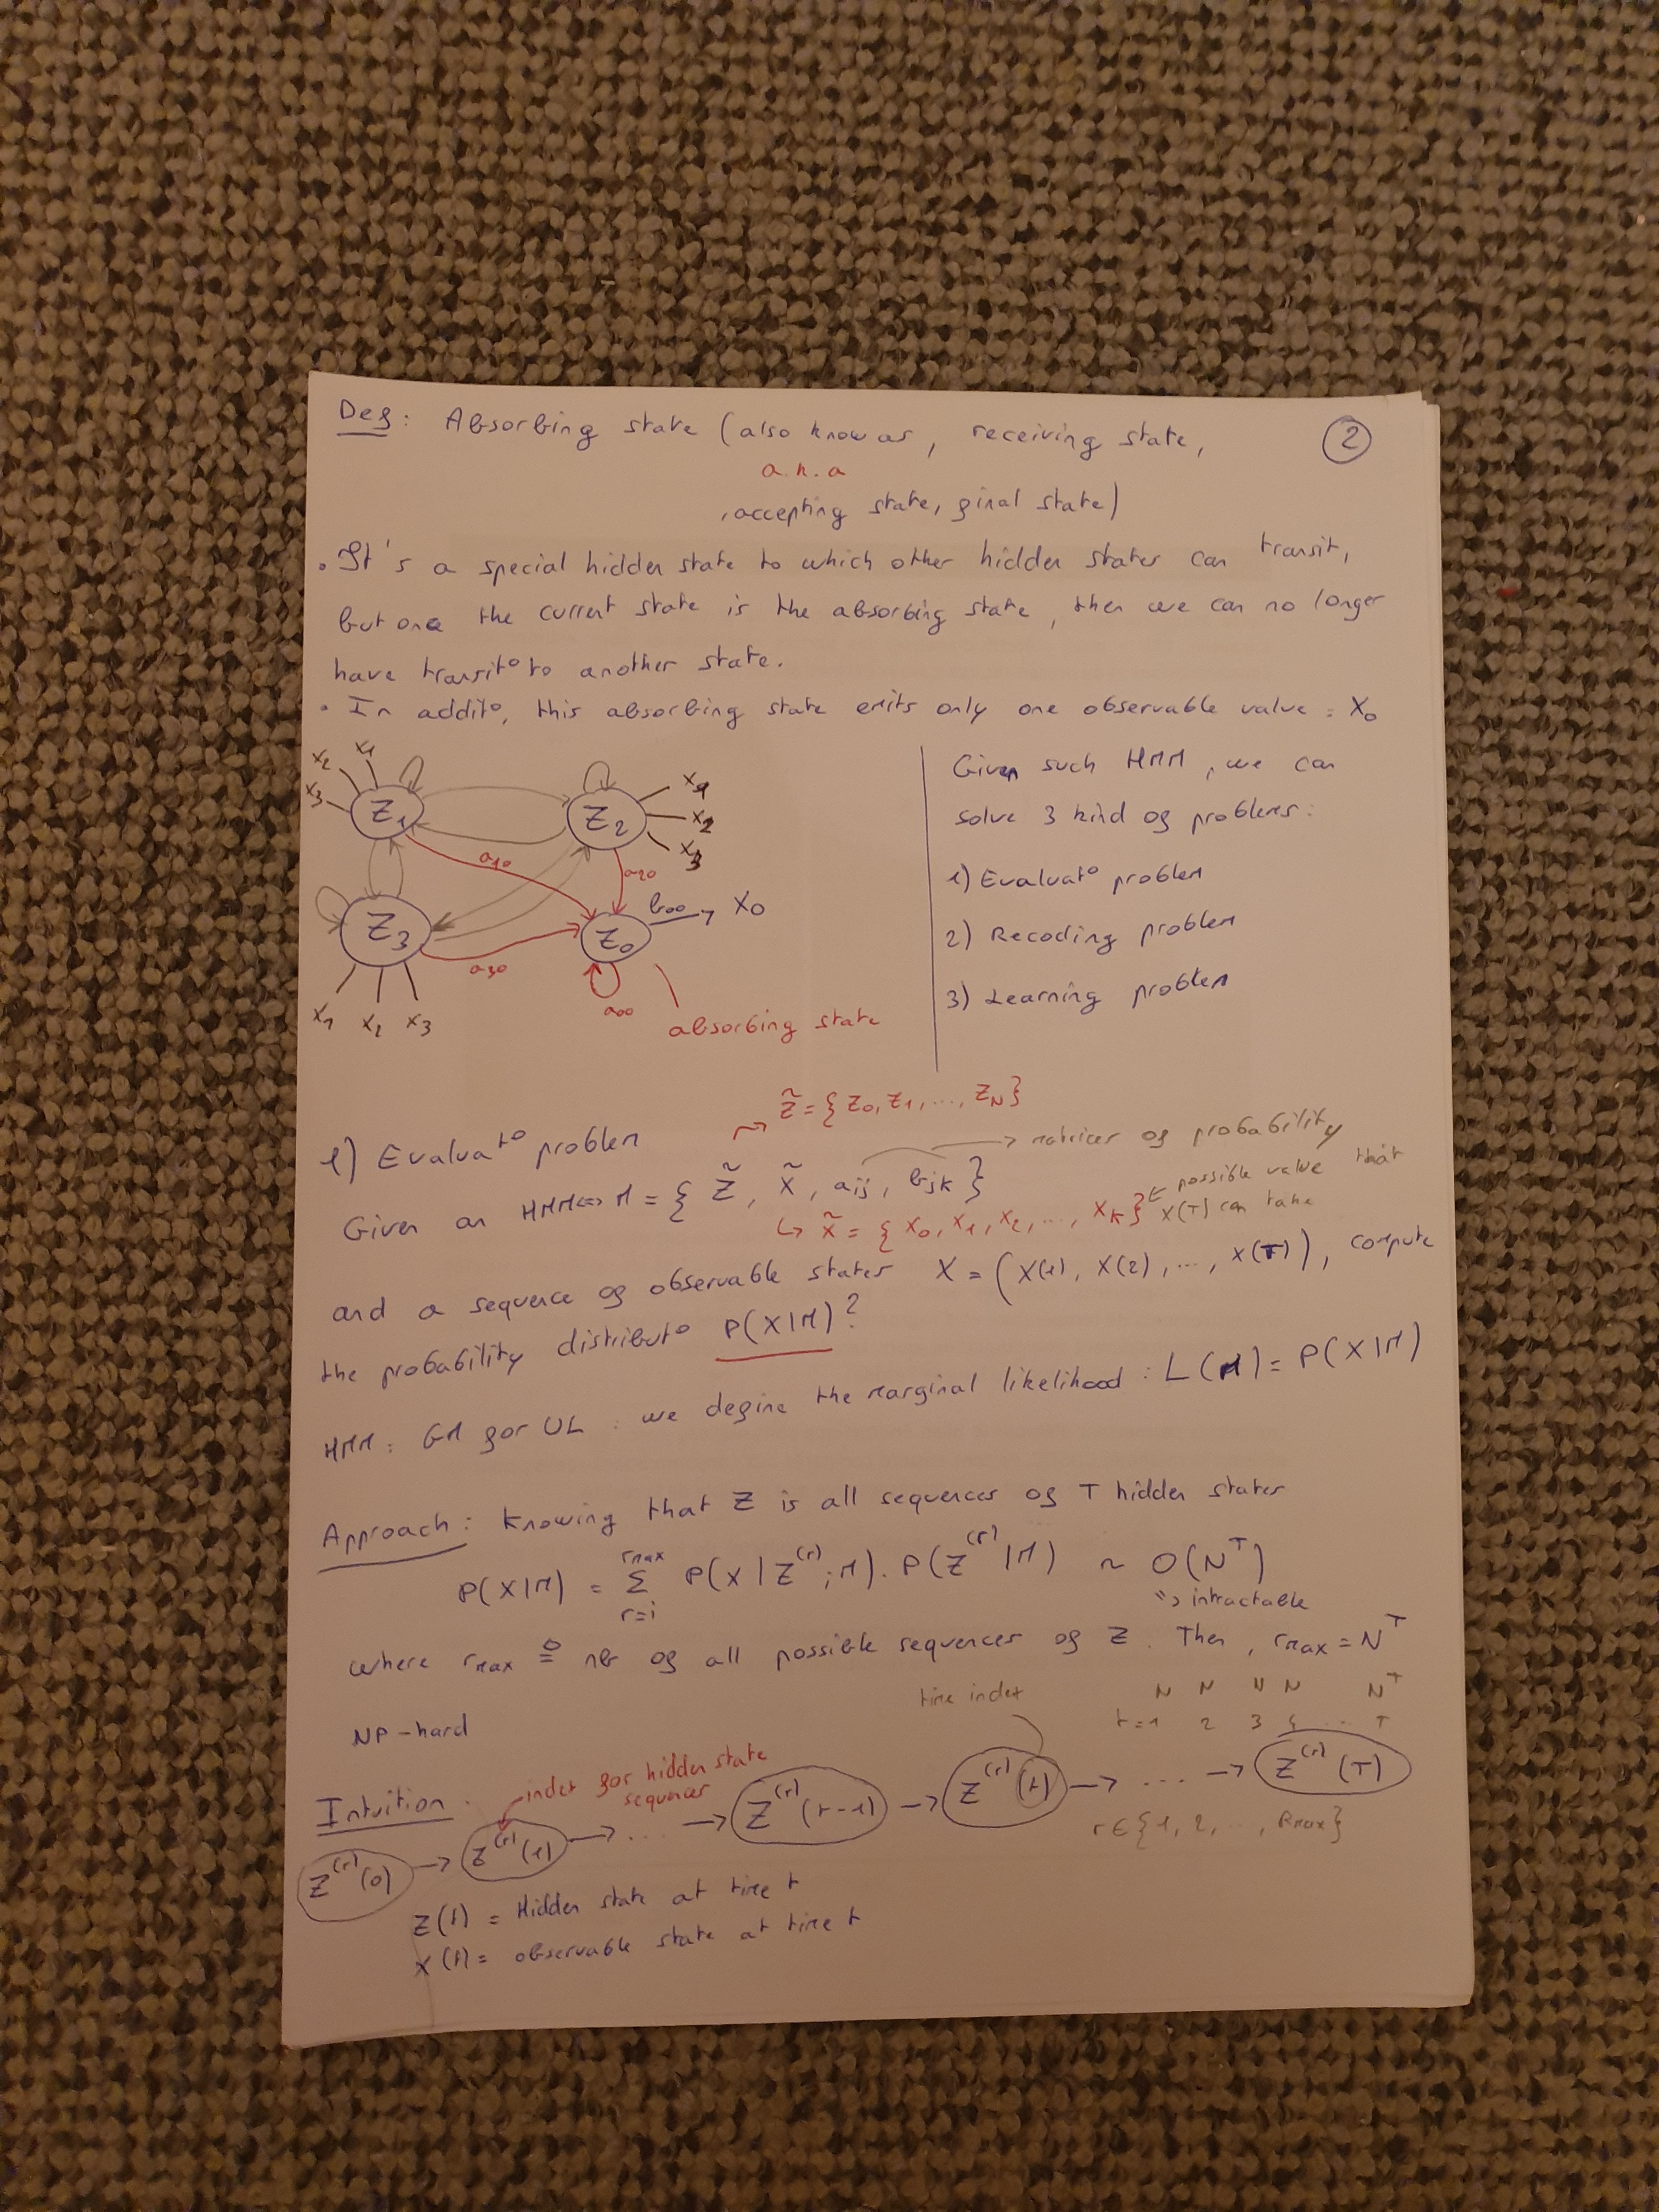 Def: Absorbing state (also know as, receiving state,
②
a.k.a
, accepting state, final state)
. It's a special hidden state to which other hidden states can transit,
but once the current state is the absorbing state, then we can no longer
have transit° to another state.
• In addit°, this absorbing state emits only one observable value : X₀
x₃ x₂ x₁
Z₁
Z₂
x₁
x₂
x₃
a₁₀
a₂₀
Z₃
Z₀
b₀₀ → X₀
a₃₀
a₀₀
x₁ x₂ x₃
absorbing state
Given such HMM, we can
solve 3 kind of problems:
1) Evaluat° problem
2) Recoding problem
3) Learning problem
1) Evaluat° problem
Z̃ = {Z₀, Z₁, ..., Z_N}
→ matrices of probability
Given an HMM ⇔ M = { Z̃, X̃, aᵢⱼ, bⱼₖ }
↳ X̃ = { X₀, X₁, X₂, ..., X_K } ← possible value that
X(T) can take
and a sequence of observable states X = (X(1), X(2), ..., X(T)), compute
the probability distribut° P(X|M)?
HMM : GM for UL : we define the marginal likelihood : L(M) = P(X|M)
Approach : Knowing that Z is all sequences of T hidden states
P(X|M) = Σ_{r=i}^{rmax} P(X|Z⁽ʳ⁾; M). P(Z⁽ʳ⁾|M) ~ O(Nᵀ)
↪ intractable
where rmax ≙ nb of all possible sequences of Z. Then, rmax = Nᵀ
time index
N N N N Nᵀ
t=1 2 3 4 ... T
NP-hard
index for hidden state
sequences
Intuition.
Z⁽ʳ⁾(0) → Z⁽ʳ⁾(1) → ... → Z⁽ʳ⁾(t-1) → Z⁽ʳ⁾(t) → ... → Z⁽ʳ⁾(T)
r ∈ {1, 2, ..., Rmax}
Z(t) = Hidden state at time t
X(t) = observable state at time t